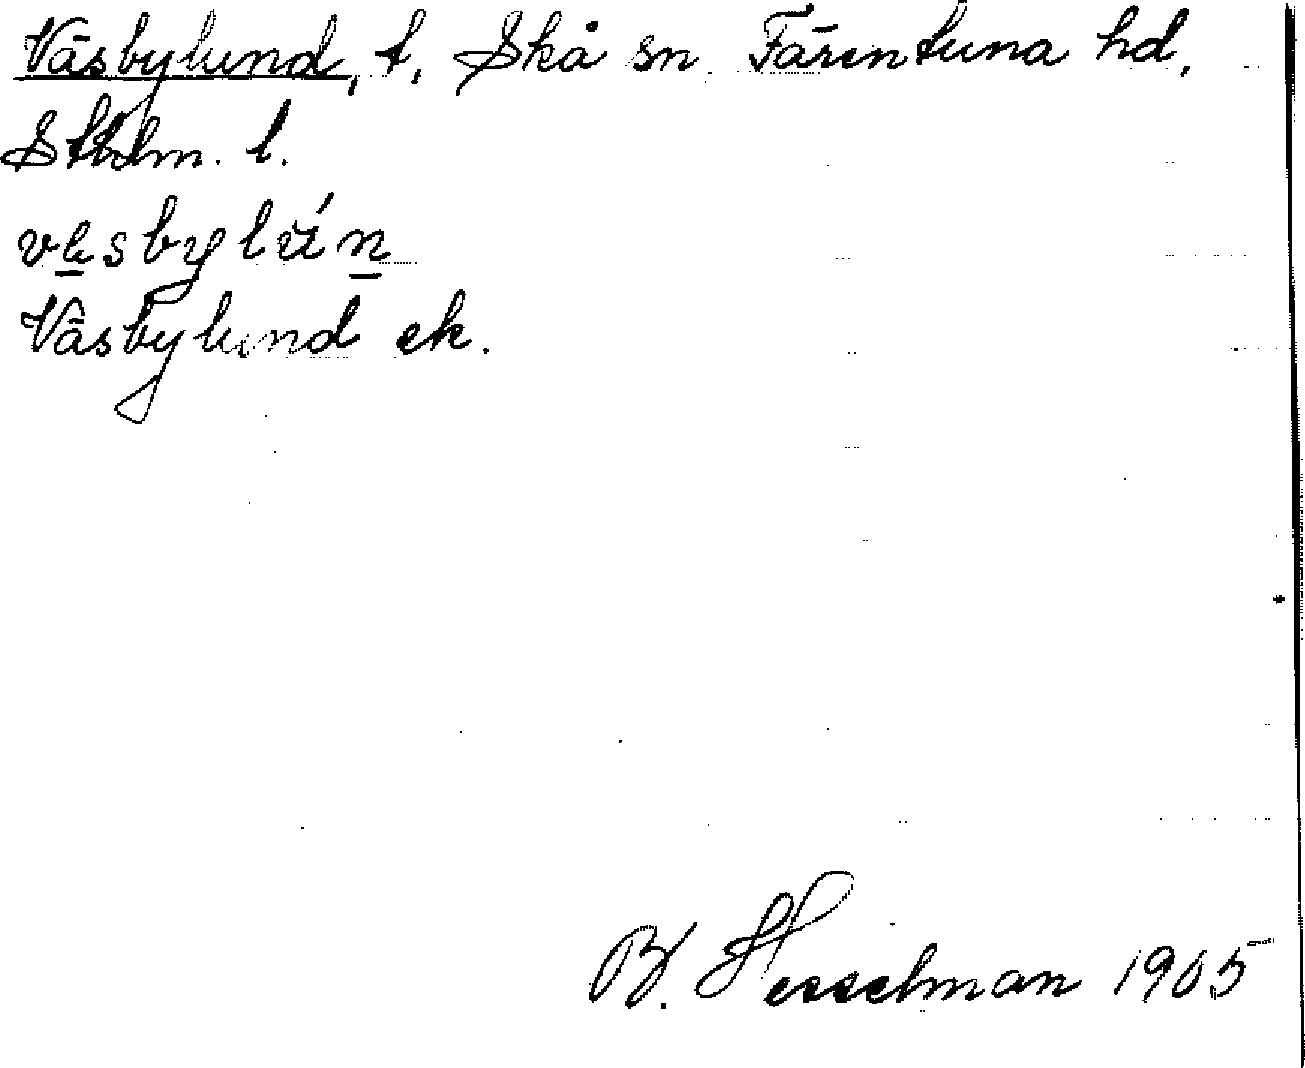 Väsbylund, t. Skå sn. Färentuna hd,
Sthlm. l.
Väsbylund ek.
B. Hesselman 1905